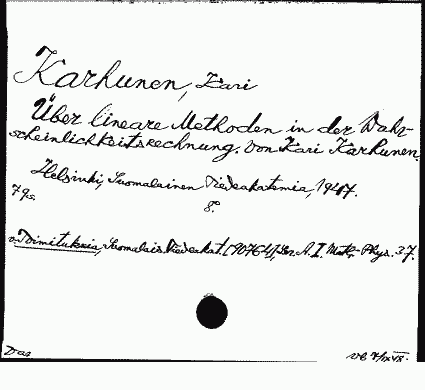 Karhunen, Kari
Über lineare Methoden in der Wahr-
scheinlichkeitsrechnung. Von Kari Karhunen.
Helsinki, Suomalainen Tiedeakatemia, 1947.
79s. 8°.
Toimituksia, Suomalais. Tiedeakat. [90764], Ser. A. I. Math.-Phys. 37.
Das